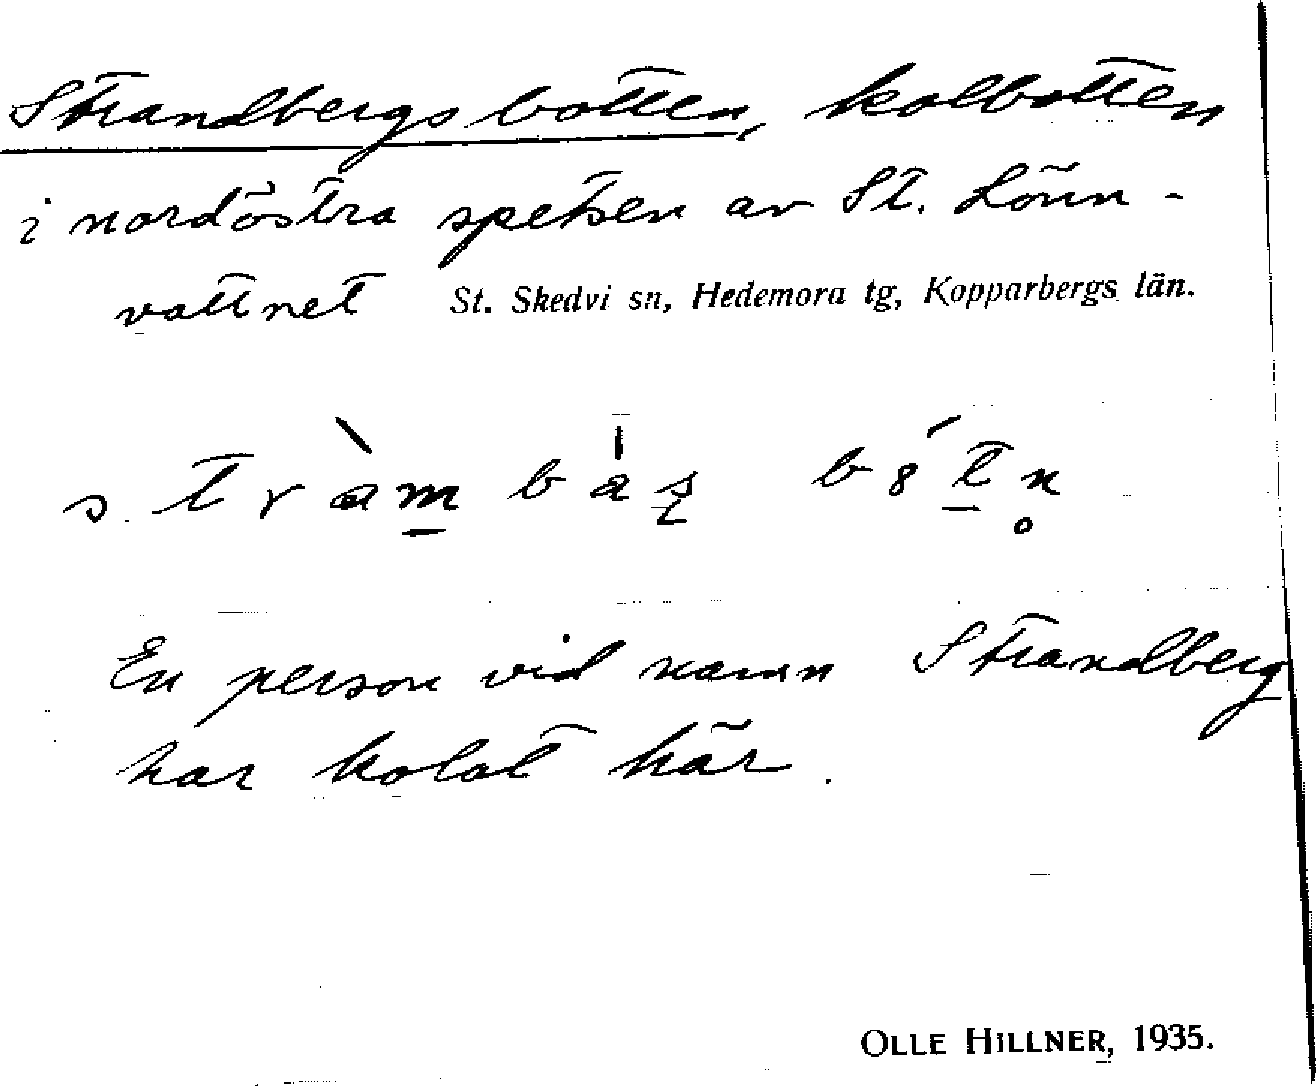 Strandbergsbotten, kolbotten
i nordöstra spetsen av St. Lönn-
vattnet St. Skedvi sn, Hedemora tg, Kopparbergs län.
En person vid namn Strandberg
har kolat här.
OLLE HILLNER, 1935.